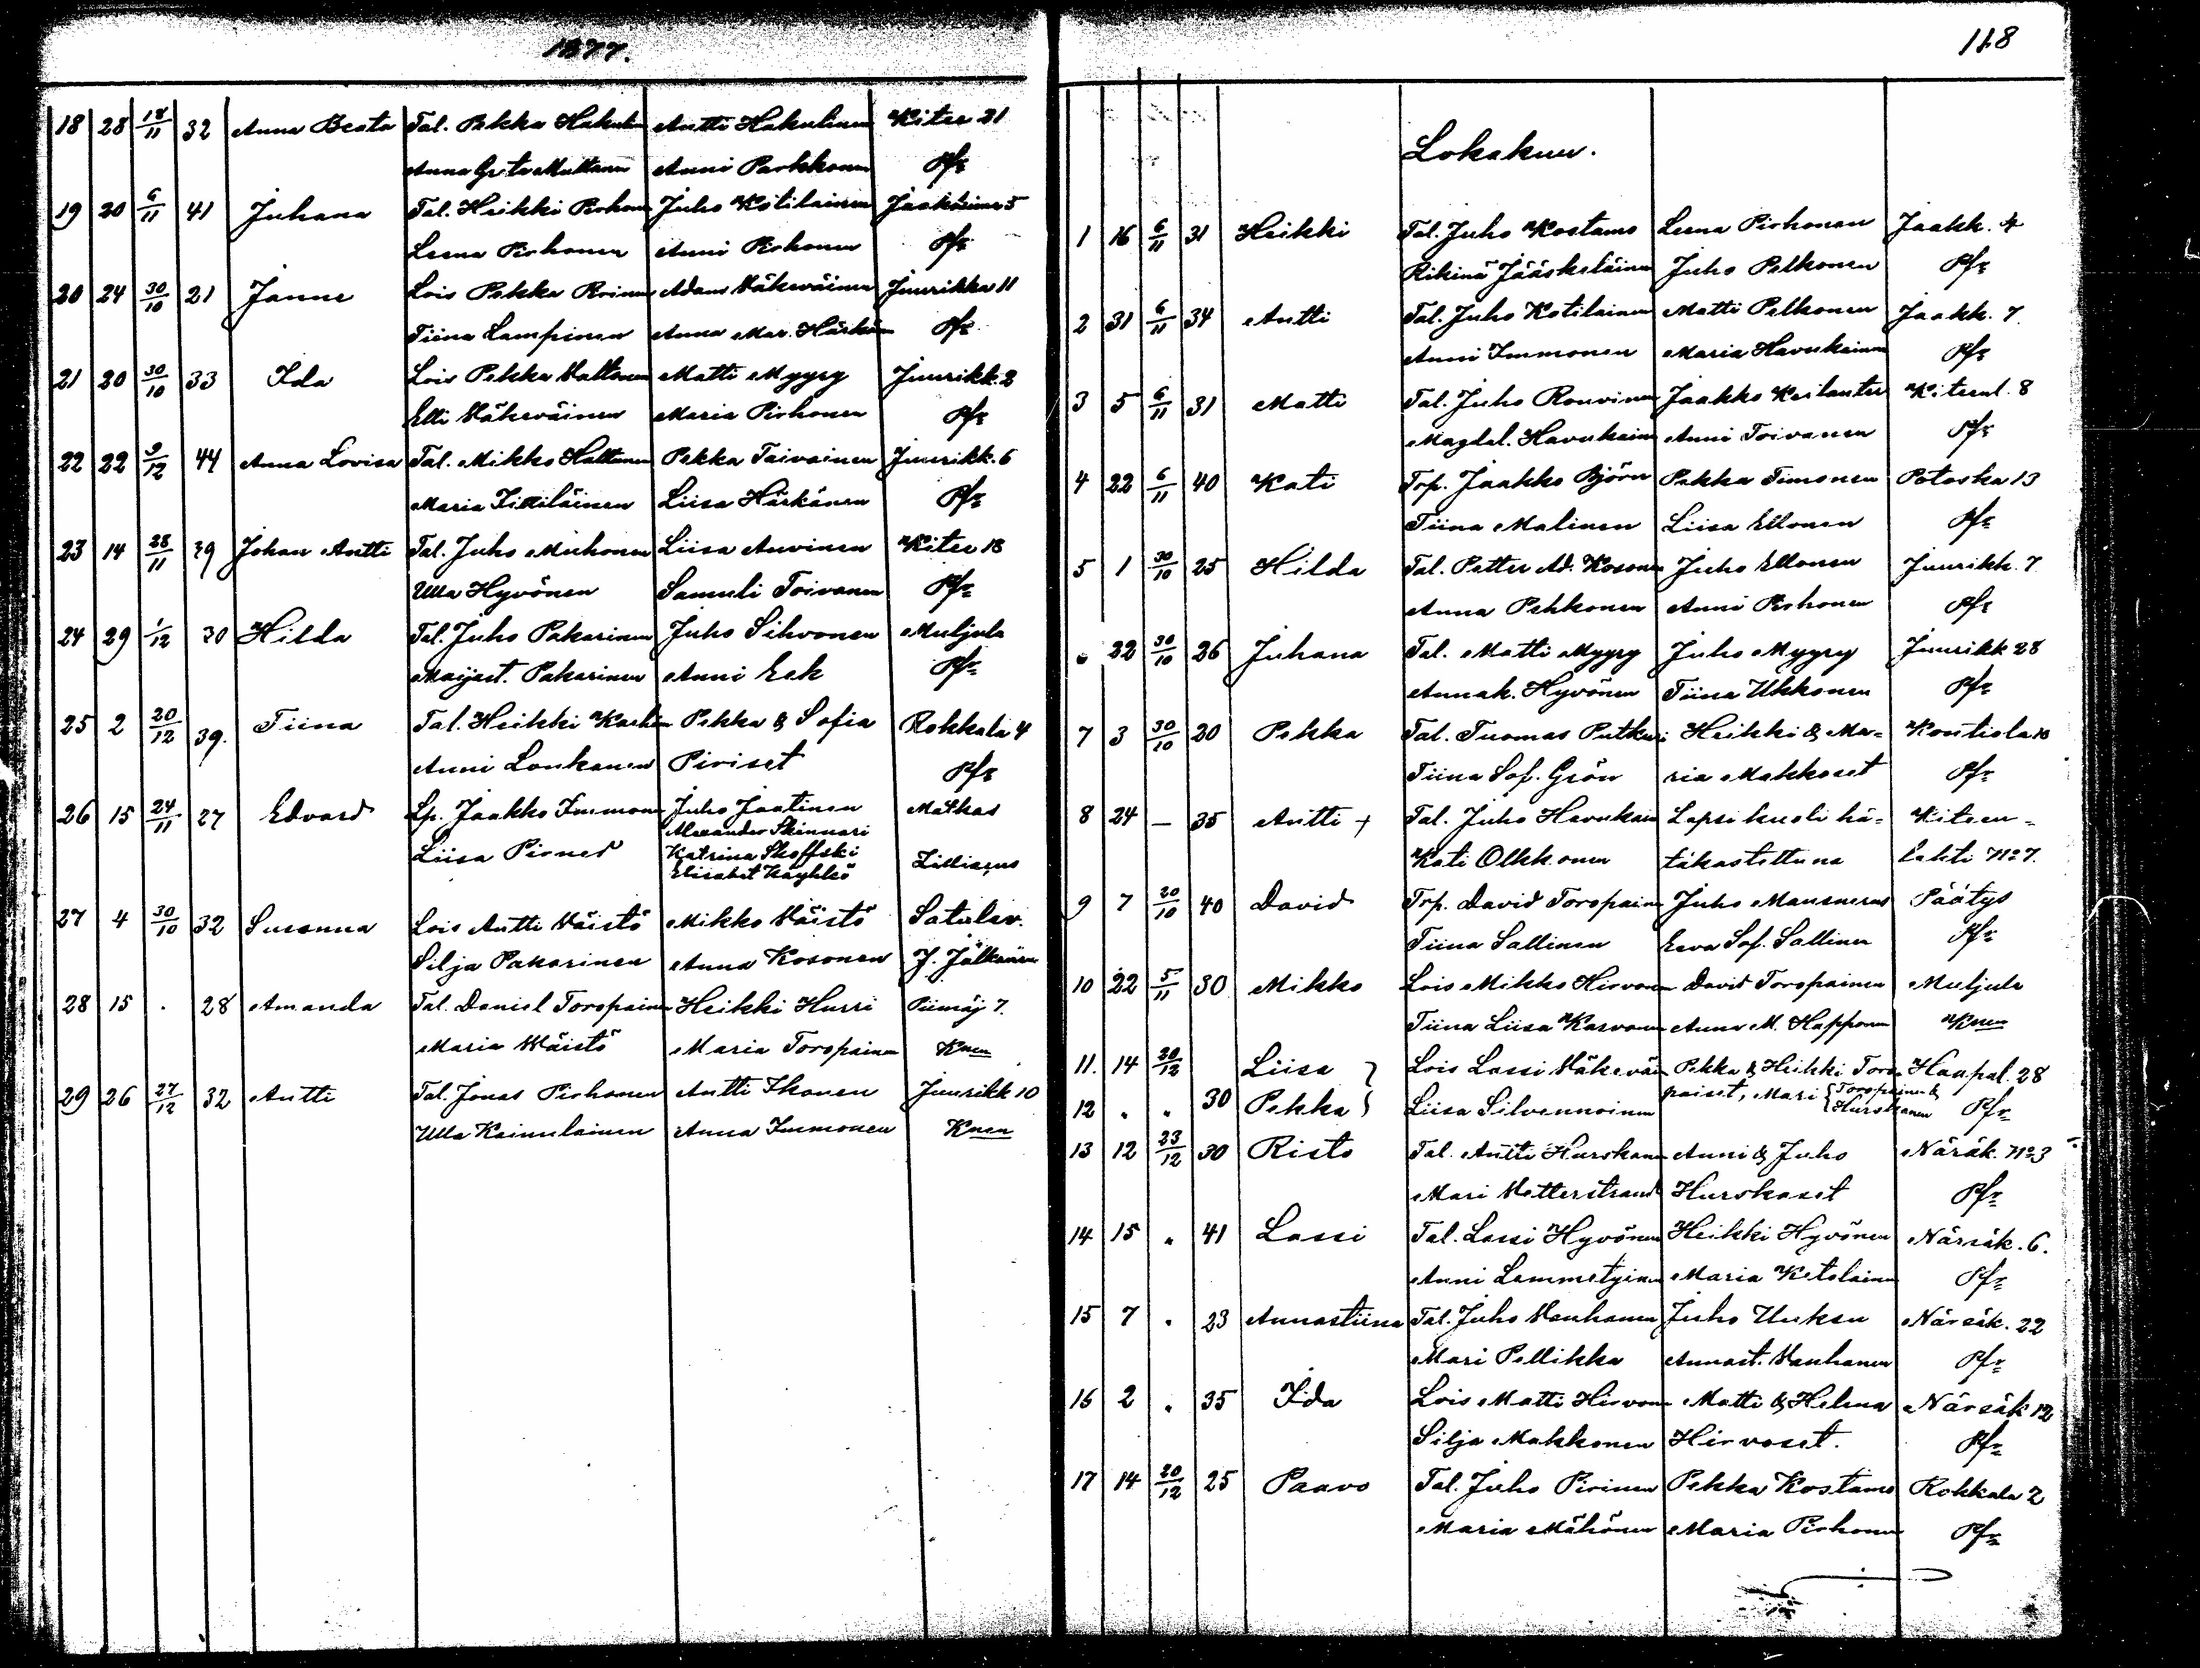 1877.
18 28 18/11 32 Anna Beata Tal. Pekka Hakuli Antti Hakulinen Kitee 21
Anna Greta Muttanen Anni Parkkonen Pfr
19 20 6/11 41 Juhana Tal. Heikki Pirhonen Juho Kotilainen Jaakkima 5
Leena Pirhonen Anni Pirhonen Pfr
20 24 30/10 21 Janne Lois Pekka Roinen Adam Väkeväinen Juurikka 11
Tiina Lampinen Anna Mar. Härkön Pfr
21 20 30/10 33 Ida Lois Pekka Valtonen Matti Myyry Juurikk. 2
Elli Väkeväinen Maria Pirhonen Pfr
22 22 9/12 44 Anna Lovisa Tal. Mikko Hattunen Pekka Taivainen Juurikk. 6
Maria Liisa Härkänen Pfr
23 14 28/11 39 Johan Antti Tal. Juho Muhonen Liisa Auvinen Kitee 18
Ulla Hyvönen Samuli Toivanen Pfr
24 29 1/12 30 Hilda Tal. Juho Pakarinen Juho Sihvonen Muljula
Maijast. Pakarinen Anni Eek Pfr
25 2 20/12 39. Tiina Tal. Heikki Pekka & Sofia Rokkala 4
Anni Lonkanen Piriset Pfr
26 15 24/11 27 Edvard Lp. Jaakko Immonen Juho Jaatinen
Alexander Skinnari
Liisa Katrina Skoffski
Elisabet Käyhkö
27 4 30/10 32 Susanna Lois Antti Väistö Mikko Väistö Satulav.
Silja Pakarinen Anna Kosonen
28 15 . 28 Amanda Tal. Daniel Toropainen Heikki Hurri Piimäj 7.
Maria Wäistö Maria Toropainen Knen
29 26 27/12 32 Antti Tal. Jonas Pirhonen Antti Ikonen Juurikk 10
Ulla Kainulainen Anna Immonen Knen
118
Lokakuu.
1 16 6/11 31 Heikki Tal. Juho Kostamo Leena Pirhonen Jaakk. 4
Rikinä Jääskeläinen Juho Pelkonen Pfr
2 31 6/11 34 Antti Tal. Juho Kotilainen Matti Pelkonen Jaakk. 7.
Anni Immonen Maria Havukainen Pfr
3 5 6/11 31 Matti Tal. Juho Rouvinen Jaakko Keilanter Kiteenl. 8
Magdal. Havukain Anni Toivanen Pfr
4 22 6/11 40 Kati Trp. Jaakko Björn Pekka Timonen Potoska 13
Tiina Malinen Liisa Ellonen Pfr
5 1 30/10 25 Hilda Tal. Petter Ad. Kosonen Juho Ellonen Juurikk. 7
Anna Pekkonen Anni Pirhonen Pfr
22 30/10 26 Juhana Tal. Matti Myyry Juho Myyry Juurikk 28
Annak. Hyvönen Tiina Ukkonen Pfr
7 3 30/10 20 Pekka Tal. Tuomas Putkuri Heikki & Ma= Kontiola 10
Tiina Sof. Grön ria Makkoset Pfr
8 24 — 35 Antti + Tal. Juho Havukain Lapsi kuoli hä= Kiteen=
Kati Olkkonen täkastettuna lahti No 7.
9 7 20/10 40 David Trp. David Toropain Juho Mausnerus Päätys
Tiina Sallinen Eeva Sof. Sallinen Pfr
10 22 5/11 30 Mikko Lois Mikko Hirvonen David Toropainen Muljula
Tiina Liisa Karvonen Anna M. Happonen Knen
11. 14 20/12 Liisa } Lois Lassi Väkevän Pekka & Heikki Toro= Haapal. 28
12 " " 30 Pekka } Liisa Silvennoinen paiset, Mari { Toropainen & Hurskanen Pfr
13 12 23/12 30 Risto Tal. Antti Hurskanen Anni & Juho Närsäk. No 3
Mari Vetterstrand Hurskaset Pfr
14 15 " 41 Lassi Tal. Lassi Hyvönen Heikki Hyvönen Närsäk. 6.
Anni Lemmetyinen Maria Ketolainen Pfr
15 7 " 23 Annastiina Tal. Juho Vanhanen Juho Uuksu Närsäk. 22
Mari Pellikka Annast. Vanhanen Pfr
16 2 " 35 Ida Lois Matti Hirvonen Matti & Helena Närsäk 12
Silja Makkonen Hirvoset. Pfr
17 14 20/12 25 Paavo Tal. Juho Pirinen Pekka Kostamo Rokkala 2
Maria Mähönen Maria Pirhonen Pfr